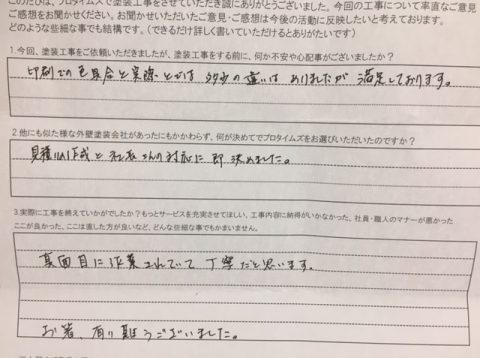 このたびは、プロタイムズで塗装工事をさせていただき誠にありがとうございました。今回の工事について率直なご意見
ご感想をお聞かせください。お聞かせいただいたご意見・ご感想は今後の活動に反映したいと考えております。
どのような些細な事でも結構です。（できるだけ詳しく書いていただけるとありがたいです）
1.今回、塗装工事をご依頼いただきましたが、塗装工事をする前に、何か不安や心配事がございましたか？
印刷での色具合と実際とでは 多少の違いは ありましたが 満足しております。
2.他にも似た様な外壁塗装会社があったにもかかわらず、何が決めてでプロタイムズをお選びいただいたのですか？
見積り作成と社長さんの対応に即決めました。
3.実際に工事を終えていかがでしたか？もっとサービスを充実させてほしい、工事内容に納得がいかなかった、社員・職人のマナーが悪かった
ここが良かった、ここは直した方が良いなど、どんな些細な事でもかまいません。
真面目に作業されていて丁寧だと思います。
お暑、有り難うございました。